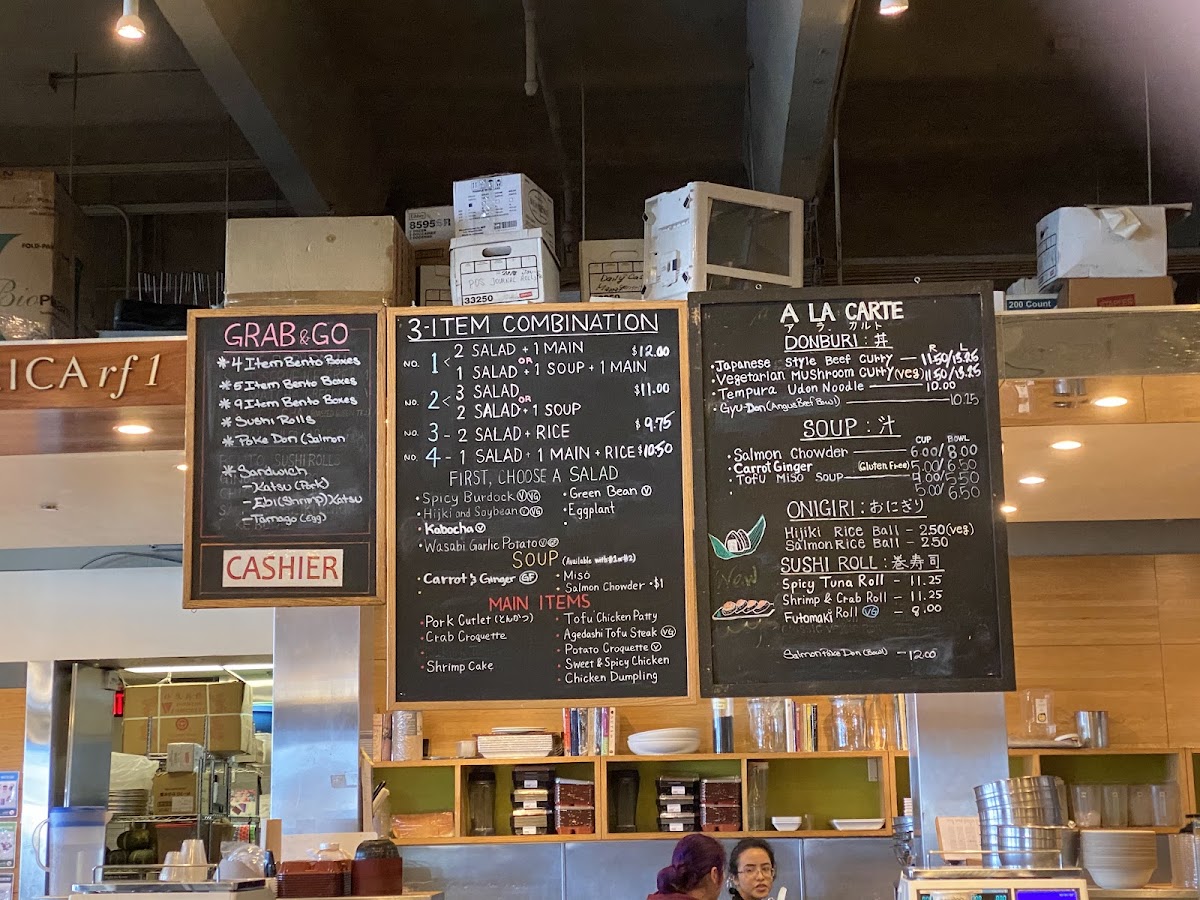 ICA rf 1
8595
POS Journal Rolls
33250
200 Count
GRAB & GO
* 4 Item Bento Boxes
* 5 Item Bento Boxes
* 9 Item Bento Boxes
* Sushi Rolls
* Poke Don (Salmon
* Sandwich
- Katsu (Pork)
- Ebi (Shrimp) Katsu
- Tamago (Egg)
CASHIER
3-ITEM COMBINATION
NO. 1 < 2 SALAD + 1 MAIN $12.00
OR
1 SALAD + 1 SOUP + 1 MAIN
NO. 2 < 3 SALAD $11.00
OR
2 SALAD + 1 SOUP
NO. 3 - 2 SALAD + RICE $9.75
NO. 4 - 1 SALAD + 1 MAIN + RICE $10.50
FIRST, CHOOSE A SALAD
• Spicy Burdock V VG
• Hijki and Soybean VG
• Kabocha V
• Wasabi Garlic Potato
• Green Bean V
• Eggplant
SOUP (Available with #1 or #2)
• Carrot & Ginger GF
• Miso
• Salmon Chowder +$1
MAIN ITEMS
• Pork Cutlet (とんかつ)
• Crab Croquette
• Shrimp Cake
• Tofu Chicken Patty
• Agedashi Tofu Steak VG
• Potato Croquette V
• Sweet & Spicy Chicken
• Chicken Dumpling
A LA CARTE
ア ラ カルト
DONBURI : 丼
R L
• Japanese Style Beef Curry — 11.50/13.25
• Vegetarian Mushroom Curry (veg) 11.50/13.25
• Tempura Udon Noodle — 10.00
• Gyu-Don (Angus Beef Bowl) — 10.25
SOUP : 汁
CUP BOWL
• Salmon Chowder — 6.00/8.00
• Carrot Ginger (Gluten Free) 5.00/6.50
• Tofu Miso Soup — 4.00/5.25
5.00/6.50
ONIGIRI : おにぎり
Hijiki Rice Ball - 2.50 (veg)
Salmon Rice Ball - 2.50
SUSHI ROLL : 巻寿司
New
Spicy Tuna Roll - 11.25
Shrimp & Crab Roll - 11.25
Futomaki Roll VG - 8.00
Salmon Poke Don (Bowl) - 12.00